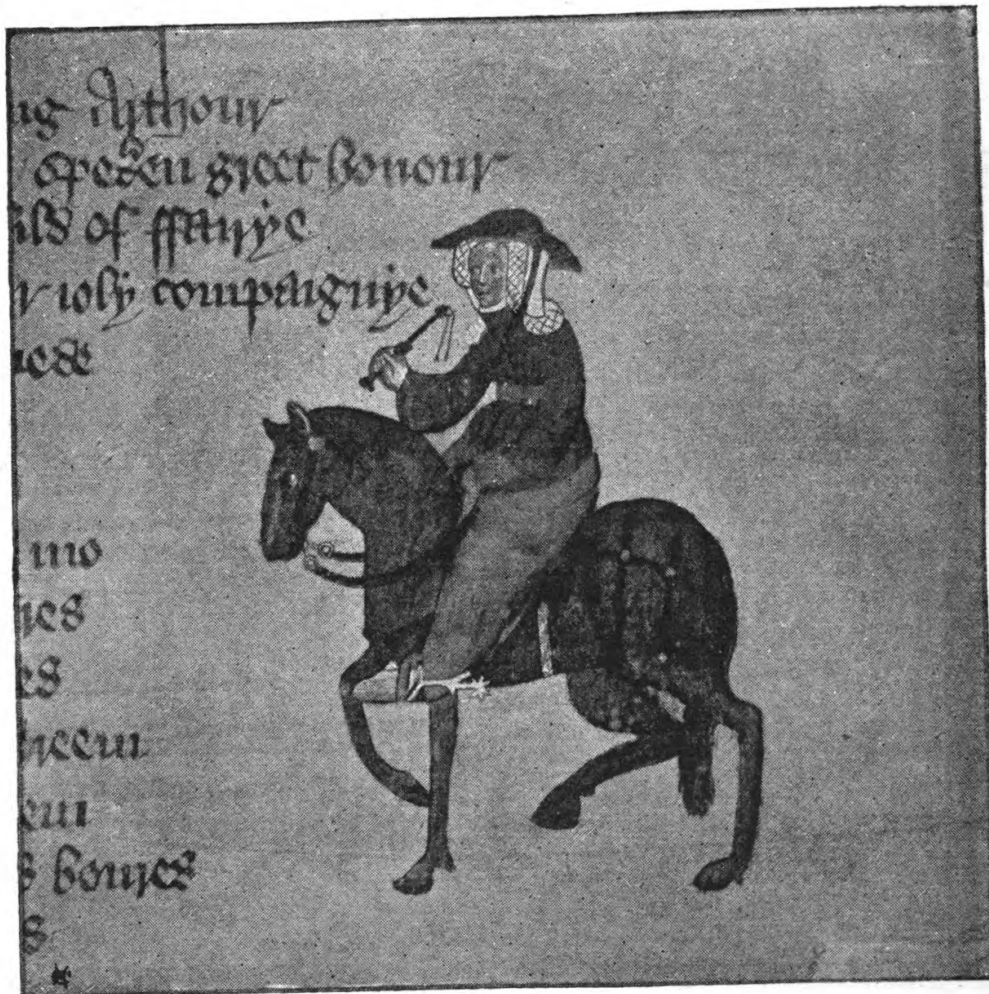 ng Arthour
speken greet honour
fild of ffairye
ir ioly compaignye
mede
mo
ries
es
streem
eem
s boures
s